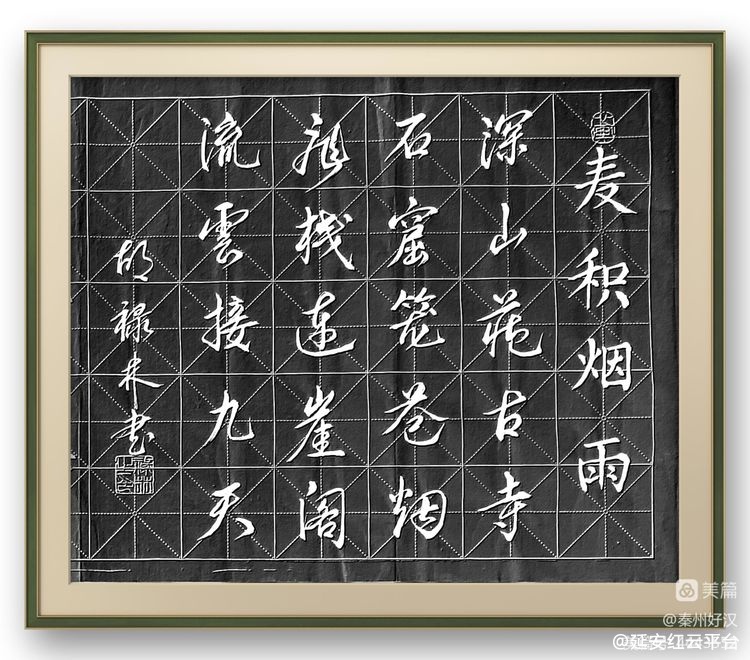 麦积烟雨
深山藏古寺
石窟笼苍烟
飛栈连崖阁
流雲接九天
胡禄林书
美篇
@秦州好汉
@延安红云平台